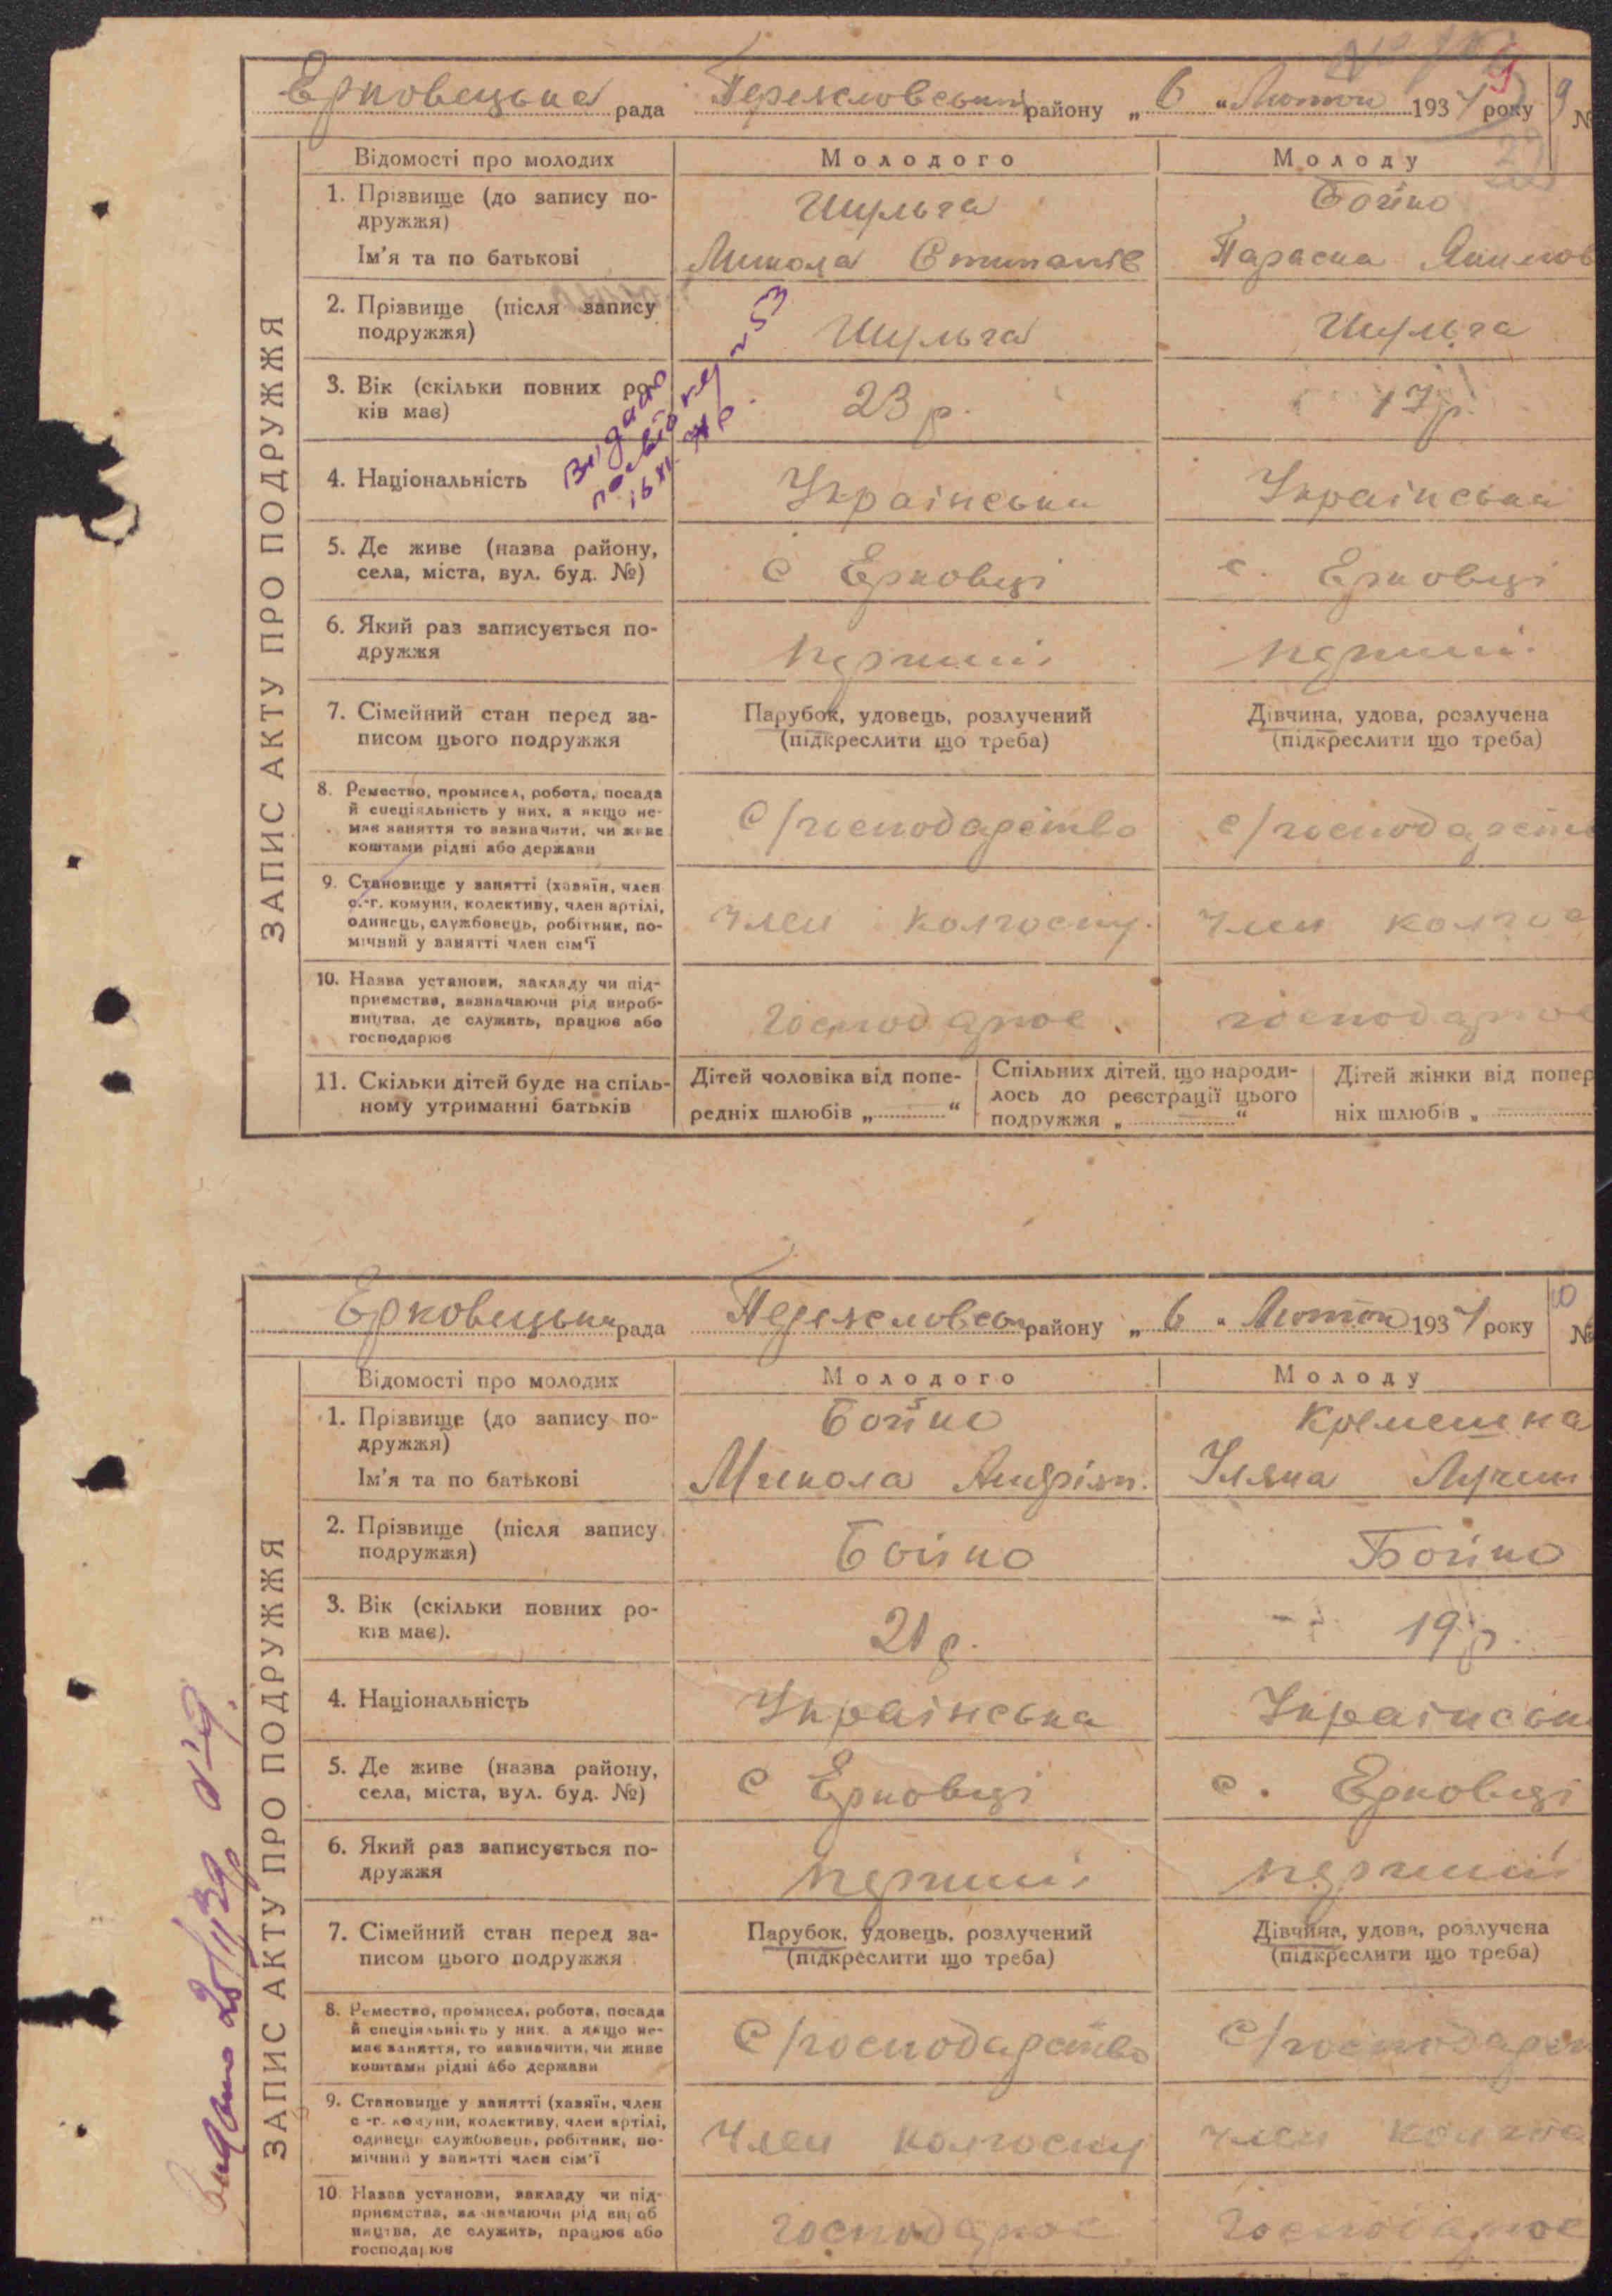 Ерковецька рада Переяславський району „ 6 “ Лютого 1937 року 9 №
ЗАПИС АКТУ ПРО ПОДРУЖЖЯ
Відомості про молодих
Молодого
Молоду
1. Прізвище (до запису по-
дружжя)
Шульга
Бойко
Ім'я та по батькові
Микола Степанів
Параска Якимов
2. Прізвище (після запису
подружжя)
Шульга
Шульга
3. Вік (скільки повних ро-
ків має)
23 р.
17 р.
Видано
4. Національність
Українська
Українська
5. Де живе (назва району,
села, міста, вул. буд. №)
с Ерковці
с. Ерковці
6. Який раз записується по-
дружжя
перший
перший
7. Сімейний стан перед за-
писом цього подружжя
Парубок, удовець, розлучений
(підкреслити що треба)
Дівчина, удова, розлучена
(підкреслити що треба)
8. Ремество, промисел, робота, посада
й спеціяльність у них, а якщо не-
має заняття то зазначити, чи живе
коштами рідні або держави
С/господарство
с/господарств
9. Становище у занятті (хазяїн, член
с.-г. комуни, колективу, член артілі,
одинець, службовець, робітник, по-
мічний у занятті член сім'ї
Член колгоспу.
Член колгос
10. Назва установи, закладу чи під-
приємства, зазначаючи рід вироб-
ництва, де служить, працює або
господарює
Господарює
господарює
11. Скільки дітей буде на спіль-
ному утриманні батьків
Дітей чоловіка від попе-
редніх шлюбів „ — “
Спільних дітей, що народи-
лось до реєстрації цього
подружжя „ — “
Дітей жінки від попер
ніх шлюбів „
Ерковецька рада Переяславськ району „ 6 “ Лютого 1937 року 10 №
ЗАПИС АКТУ ПРО ПОДРУЖЖЯ
Відомості про молодих
Молодого
Молоду
1. Прізвище (до запису по-
дружжя)
Бойко
Ім'я та по батькові
Микола Андріян.
Уляна
2. Прізвище (після запису
подружжя)
Бойко
Бойко
3. Вік (скільки повних ро-
ків має).
21 р.
19 р.
4. Національність
Українська
Українськ
5. Де живе (назва району,
села, міста, вул. буд. №)
с Ерковці
с. Ерковці
6. Який раз записується по-
дружжя
перший
перший
7. Сімейний стан перед за-
писом цього подружжя
Парубок, удовець, розлучений
(підкреслити що треба)
Дівчина, удова, розлучена
(підкреслити що треба)
8. Ремество, промисел, робота, посада
й спеціяльність у них, а якщо не-
має заняття, то зазначити, чи живе
коштами рідні або держави
С/господарство
С/господарст
9. Становище у занятті (хазяїн, член
с.-г. комуни, колективу, член артілі,
одинець службовець, робітник, по-
мічний у занятті член сім'ї
Член колгоспу
член колгос
10. Назва установи, закладу чи під-
приємства, зазначаючи рід вироб
ництва, де служить, працює або
господарює
Господарює
Господарює
Видано